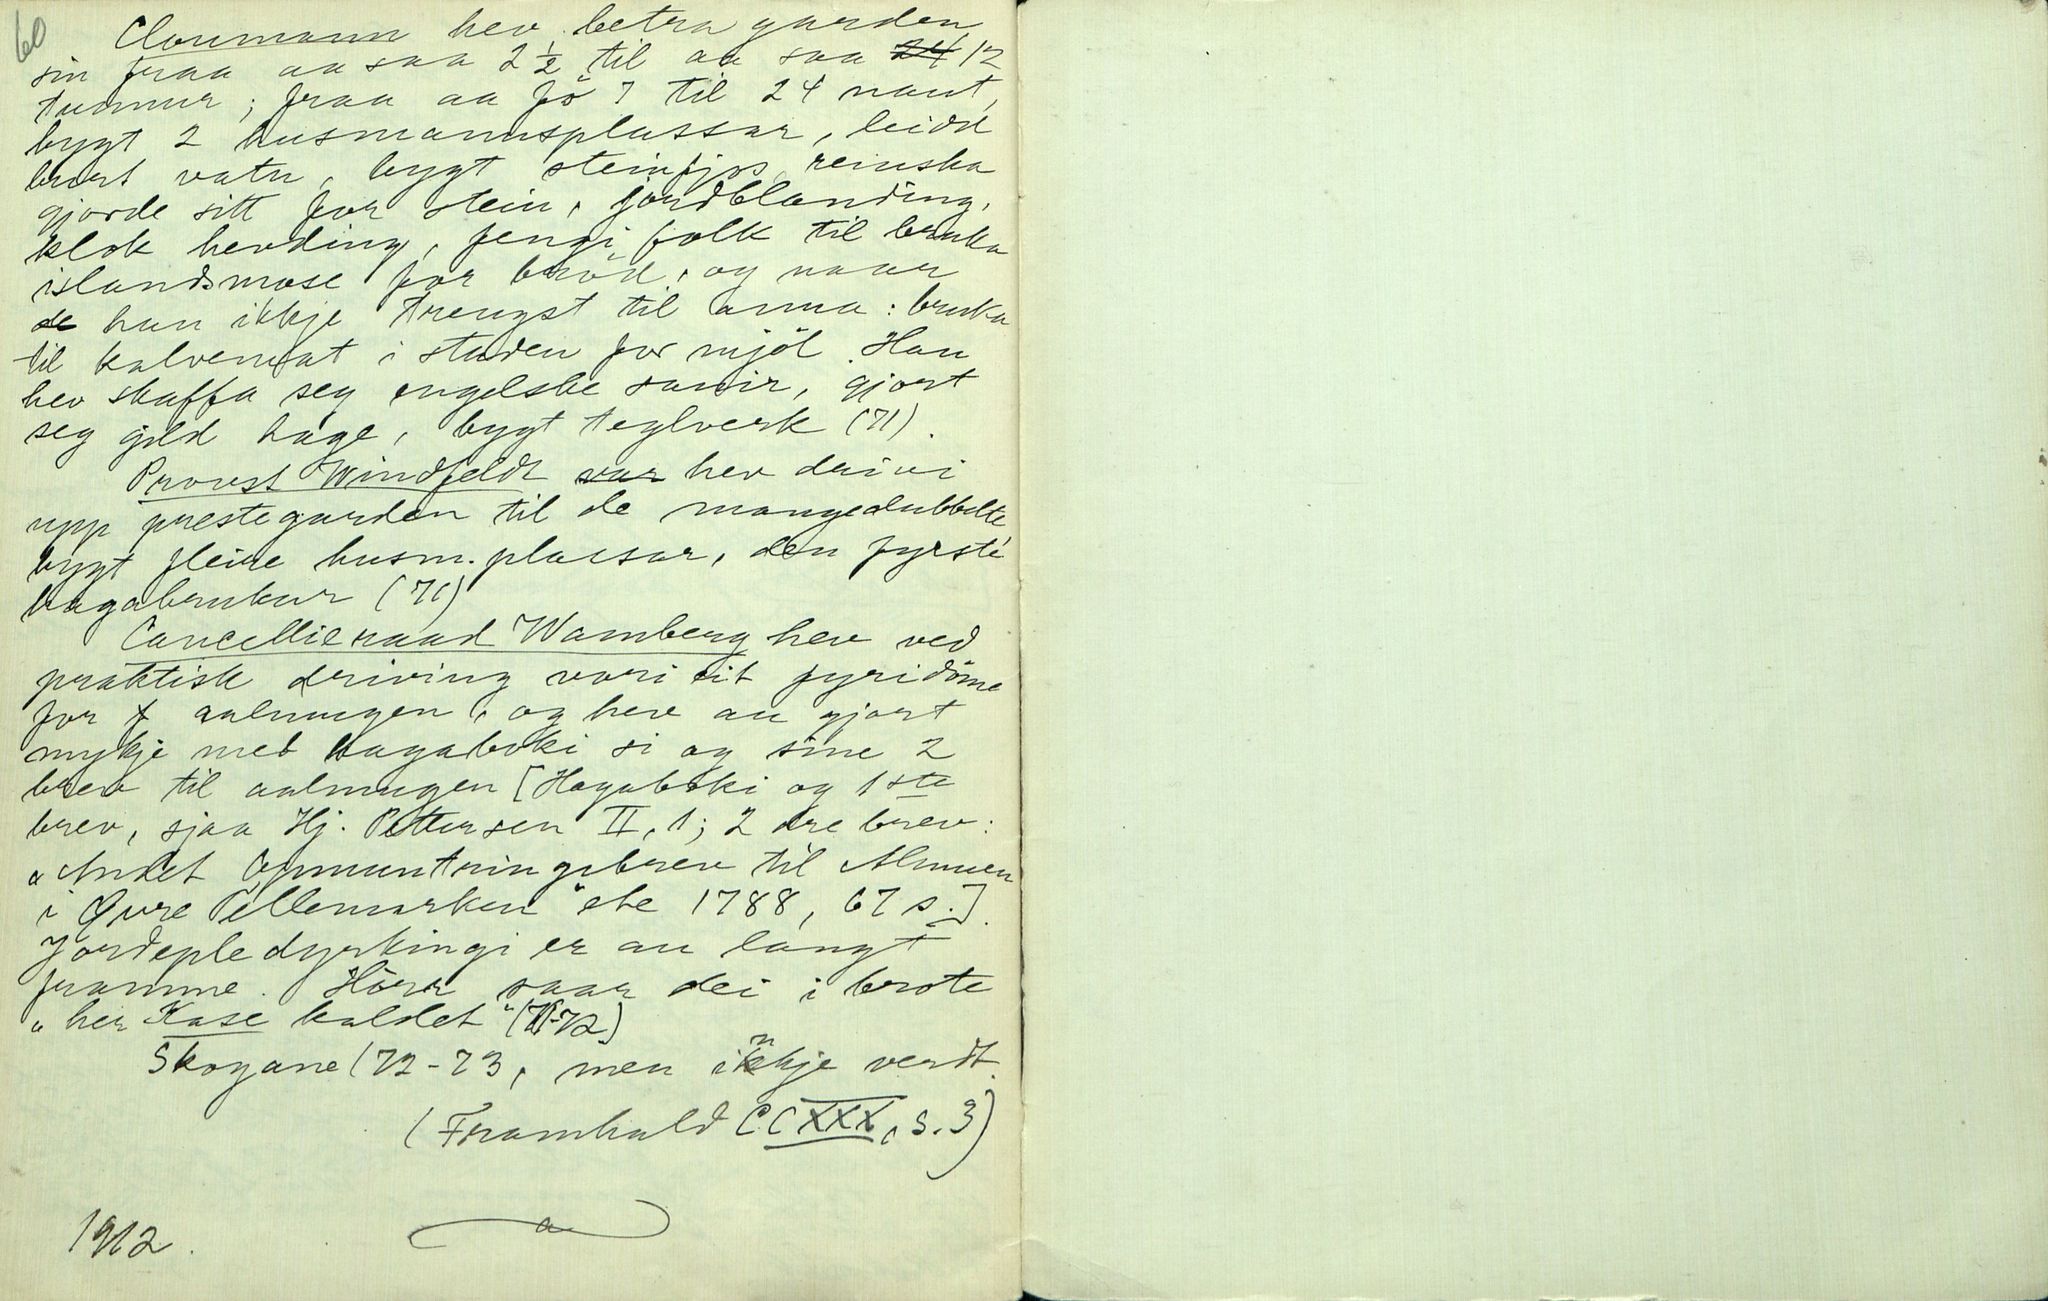 60
Cloumann hev betra garden
sin fraa aa saa 2 1/2 til aa saa 24 12
tunnur; fraa aa fö 7 til 24 naut,
bygt 2 husmannsplassar, leidt
burt vatn, bygt steinfjos, reinska
gjorde sitt for stein, jordblanding,
klok hevding, fengi folk til bruka
islandsmose for bröd, og naar
de han ikkje trengst til anna: bruka
til kalvemat i staden for mjöl. Han
hev skaffa seg engelske sauir, gjort
seg gild hage, bygt teglverk (71).
Provst Windfeldt var hev drivi
upp prestegarden til de mangedubbelte
bygt fleire husm.plassar, den fyrste
hagabrukar (71)
Cancellieraad Wamberg hev ved
praktisk driving vori eit fyridöme
for f aalmugen, og hev au gjort
mykje med hagaboki si og sine 2
brev til aalmugen [Hagaboki og 1ste
brev, sjaa Hj. Pettersen II, 1; 2 dre brev:
"Andet Opmuntringsbrev til Almuen
i Øvre Tellemarken" ebe 1788, 67 s.].
Jordepledyrkingi er au langt
framme. Hörr saar dei i brote
"her Kase kaldet" (71-72)
Skogane (72-73, men inkje verdt.
(Framhald CCXXX, s. 3)
1912.